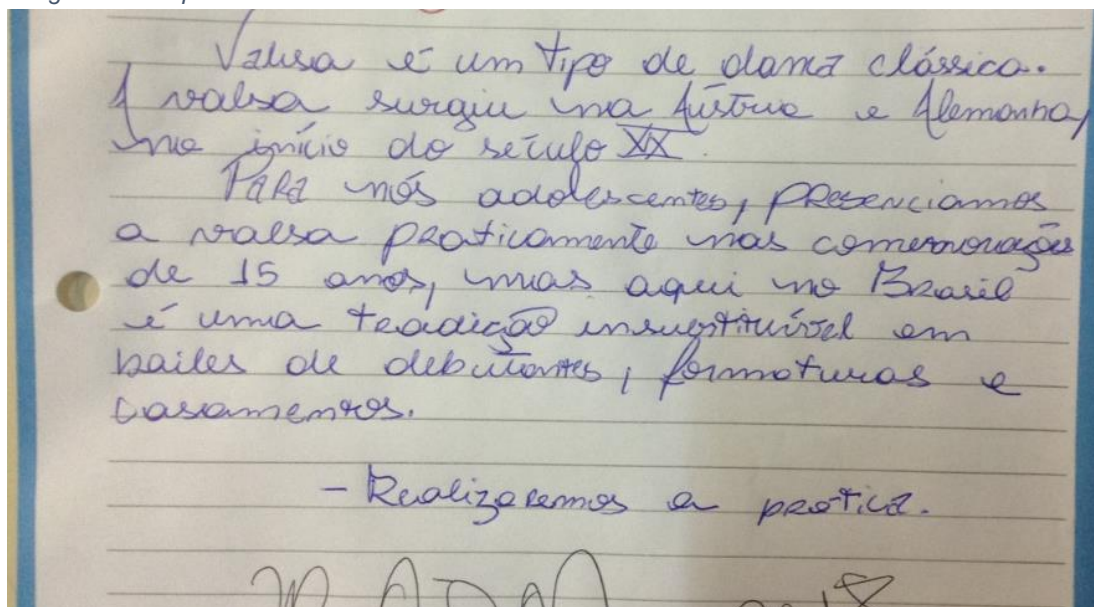 Valsa é um tipo de dança clássica.
A valsa surgiu na Áustria e Alemanha,
no início do século XX.
Para nós adolescentes, presenciamos
a valsa praticamente nas comemorações
de 15 anos, mas aqui no Brasil
é uma tradição insubstituível em
bailes de debutantes, formaturas e
casamentos.
- Realizaremos a prática.